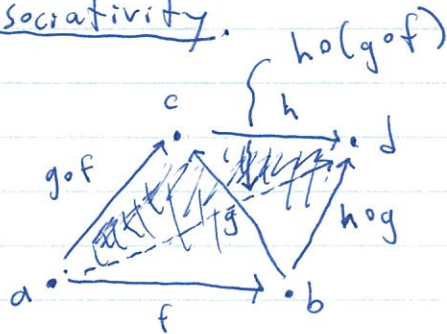 sociativity.
h∘(g∘f)
c
h
d
g∘f
g
h∘g
a
f
b